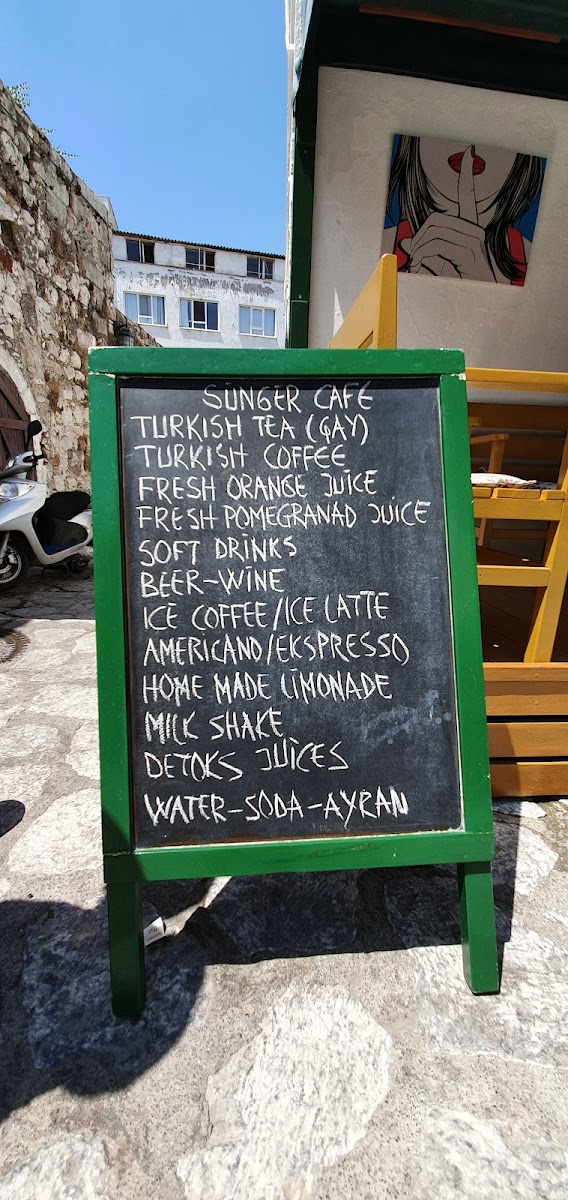 SÜNGER CAFE
TURKISH TEA (ÇAY)
TURKISH COFFEE
FRESH ORANGE JUICE
FRESH POMEGRANAD JUICE
SOFT DRİNKS
BEER-WİNE
ICE COFFEE/ICE LATTE
AMERICANO/EKSPRESSO
HOME MADE LİMONADE
MILK SHAKE
DETOKS JUİCES
WATER-SODA-AYRAN